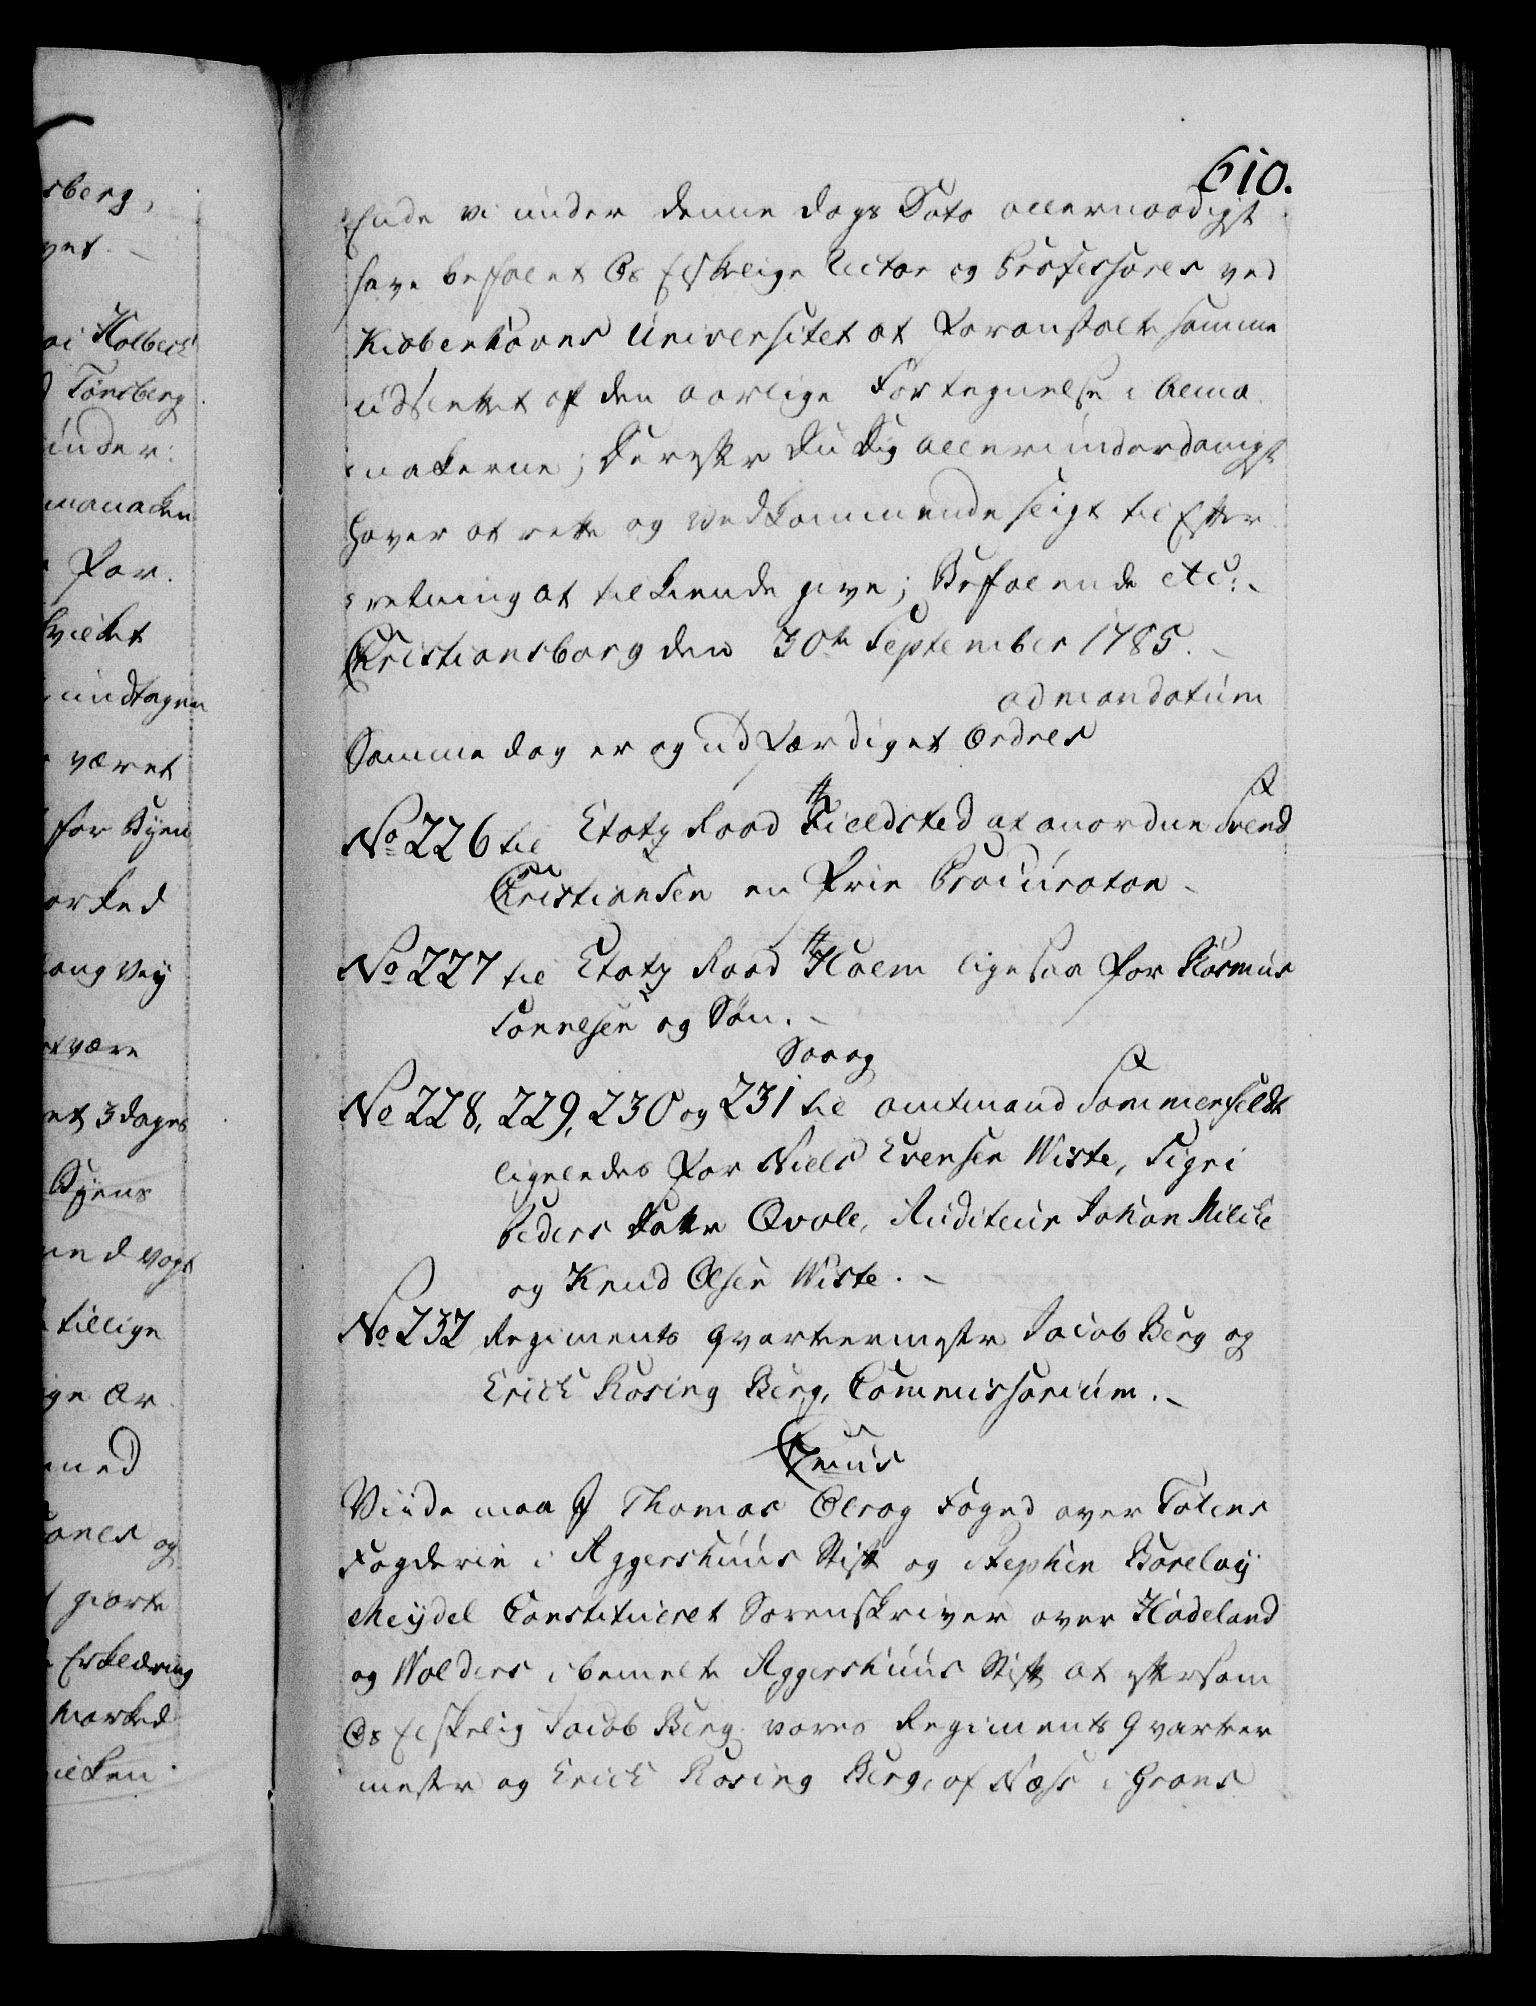 sberg,
vet. –
ai Holbech
d Tønsberg
under:
manaken
for.
hvilket
undtagen
været
for Byen
arked
være
et 3 dages
Byens
ned vogt
tillige
med
og
giorte
Erklæring
Marked
610.
Ende vi under denne dags Dato allernaadigst
have befalet Os Elskelige Rector og Professores ved
Kiøbenhavns Universitet at foranstalte samme
udslettet af den aarlige Fortegnelse i Alma-
nakerne; Derefter Du Dig allerunderdanigst
haver at rette og vedkommende sligt til Efter-
retning at tilkiende give; Befalende etc:.
Christiansborg den 30te September 1785. –
ad mandatum
Samme dag er og udfærdiget Ordres
No 226 til Etatz Raad Fieldsted at anordne Svend
Christiansen en frie Procurator –
No 227 til Etatz Raad Holm ligesaa for Rasmus
Tønnesen og Søn. –
Sorag
No 228, 229, 230 og 231 til amtmand Sommerfeldt
ligeledes for Niels Evensen Wiste, Sigri
Peders Datter Qvale, Auditeur Johan Milche
og Knud Olsen Wiste. –
No 232 Regiments qvarteermester Jacob Berg og
Erich Rosing Berg, Commissorium. –
Viide maa I Thomas Olrog Foged over Totens
Fogderie i Aggershuus Stift og Stephen Barclay
Meydel Constitueret Sorenskriver over Hadeland
og Walders i bemelte Aggershuus Stift at eftersom
Os Elskelig Jacob Berg vores Regiments Qvarteer
mester og Erich Rosing Berg, af Næss i Grans